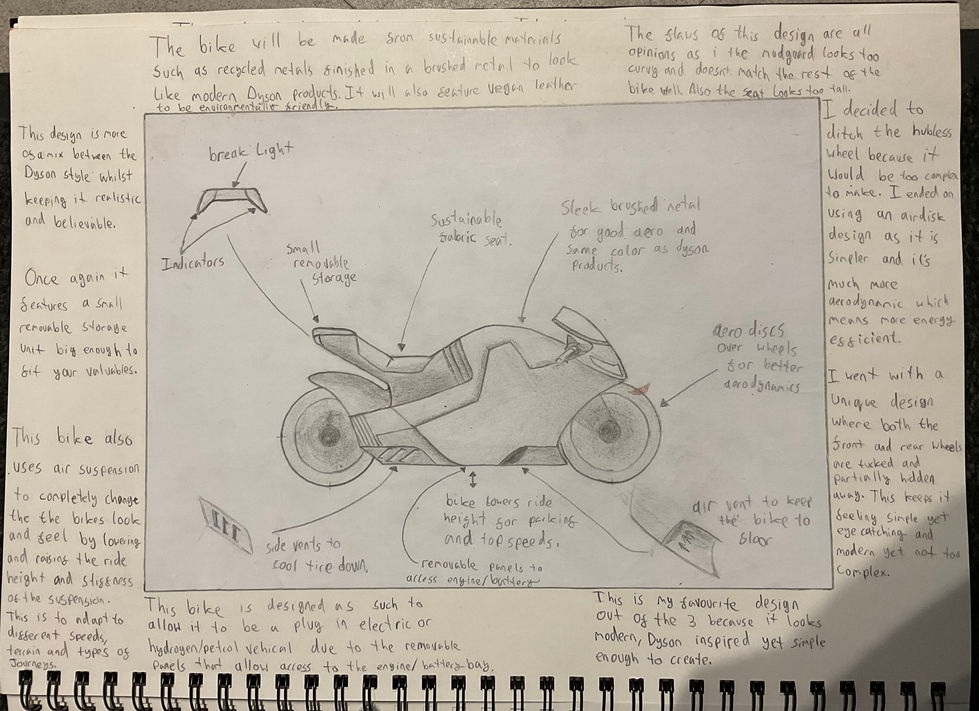 The bike will be made from sustainable materials
such as recycled metals finished in a brushed metal to look
like modern Dyson products. It will also feature vegan leather
to be environmentally friendly.
The flaws of this design are all
opinions as i the mudguard looks too
curvy and doesnt match the rest of the
bike well. Also the seat looks too tall.
This design is more
of a mix between the
Dyson style whilst
keeping it realistic
and believable.
Once again it
features a small
removable storage
unit big enough to
fit your valuables.
This bike also
uses air suspension
to completely change
the the bikes look
and feel by lowering
and raising the ride
height and stiffness
of the suspension.
This is to adapt to
different speeds,
terrain and types of
journeys.
break light
Indicators
small
removable
storage
Sustainable
fabric seat.
Sleek brushed metal
for good aero and
same color as dyson
products.
aero discs
over wheels
for better
aerodynamics
side vents to
cool tire down.
bike lowers ride
height for parking
and top speeds.
removable panels to
access engine/battery
air vent to keep
the bike to
floor
I decided to
ditch the hubless
wheel because it
would be too complex
to make. I ended on
using an airdisk
design as it is
simpler and it's
much more
aerodynamic which
means more energy
efficient.
I went with a
unique design
where both the
front and rear wheels
are tucked and
partially hidden
away. This keeps it
feeling simple yet
eye catching and
modern yet not too
complex.
This bike is designed as such to
allow it to be a plug in electric or
hydrogen/petrol vehical due to the removable
panels that allow access to the engine/battery bay.
This is my favourite design
out of the 3 because it looks
modern, Dyson inspired yet simple
enough to create.